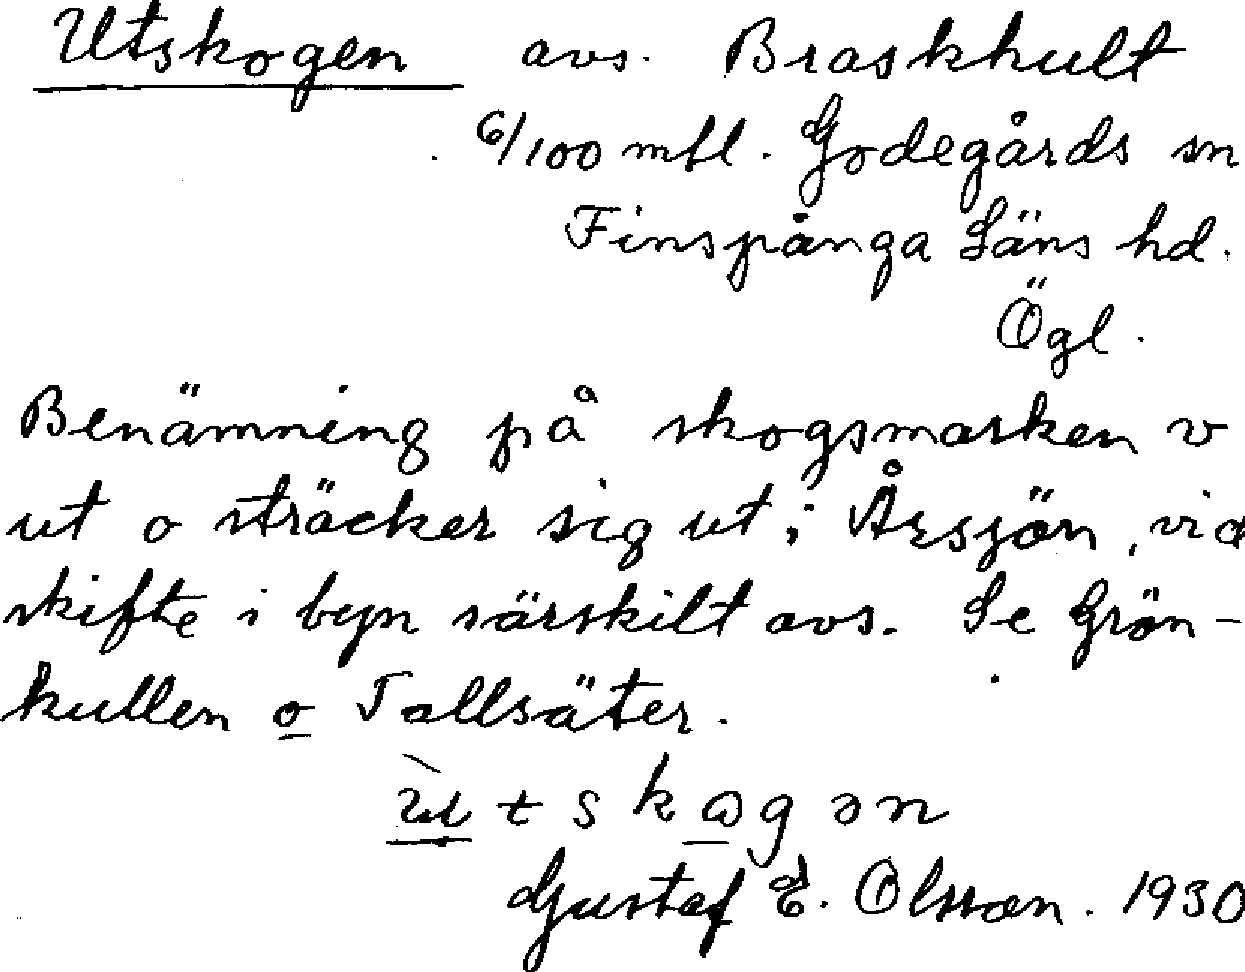 Utskogen avs. Braskhult
6/100 mtl. Godegårds sn
Finspånga Läns hd.
Ögl.
Benämning på skogsmarken v
ut o sträcker sig ut i Årsjön, vid
skifte i byn särskilt avs. Se Grön-
kullen o Tallsäter.
ùtskωgən
Gustaf E. Olsson. 1930